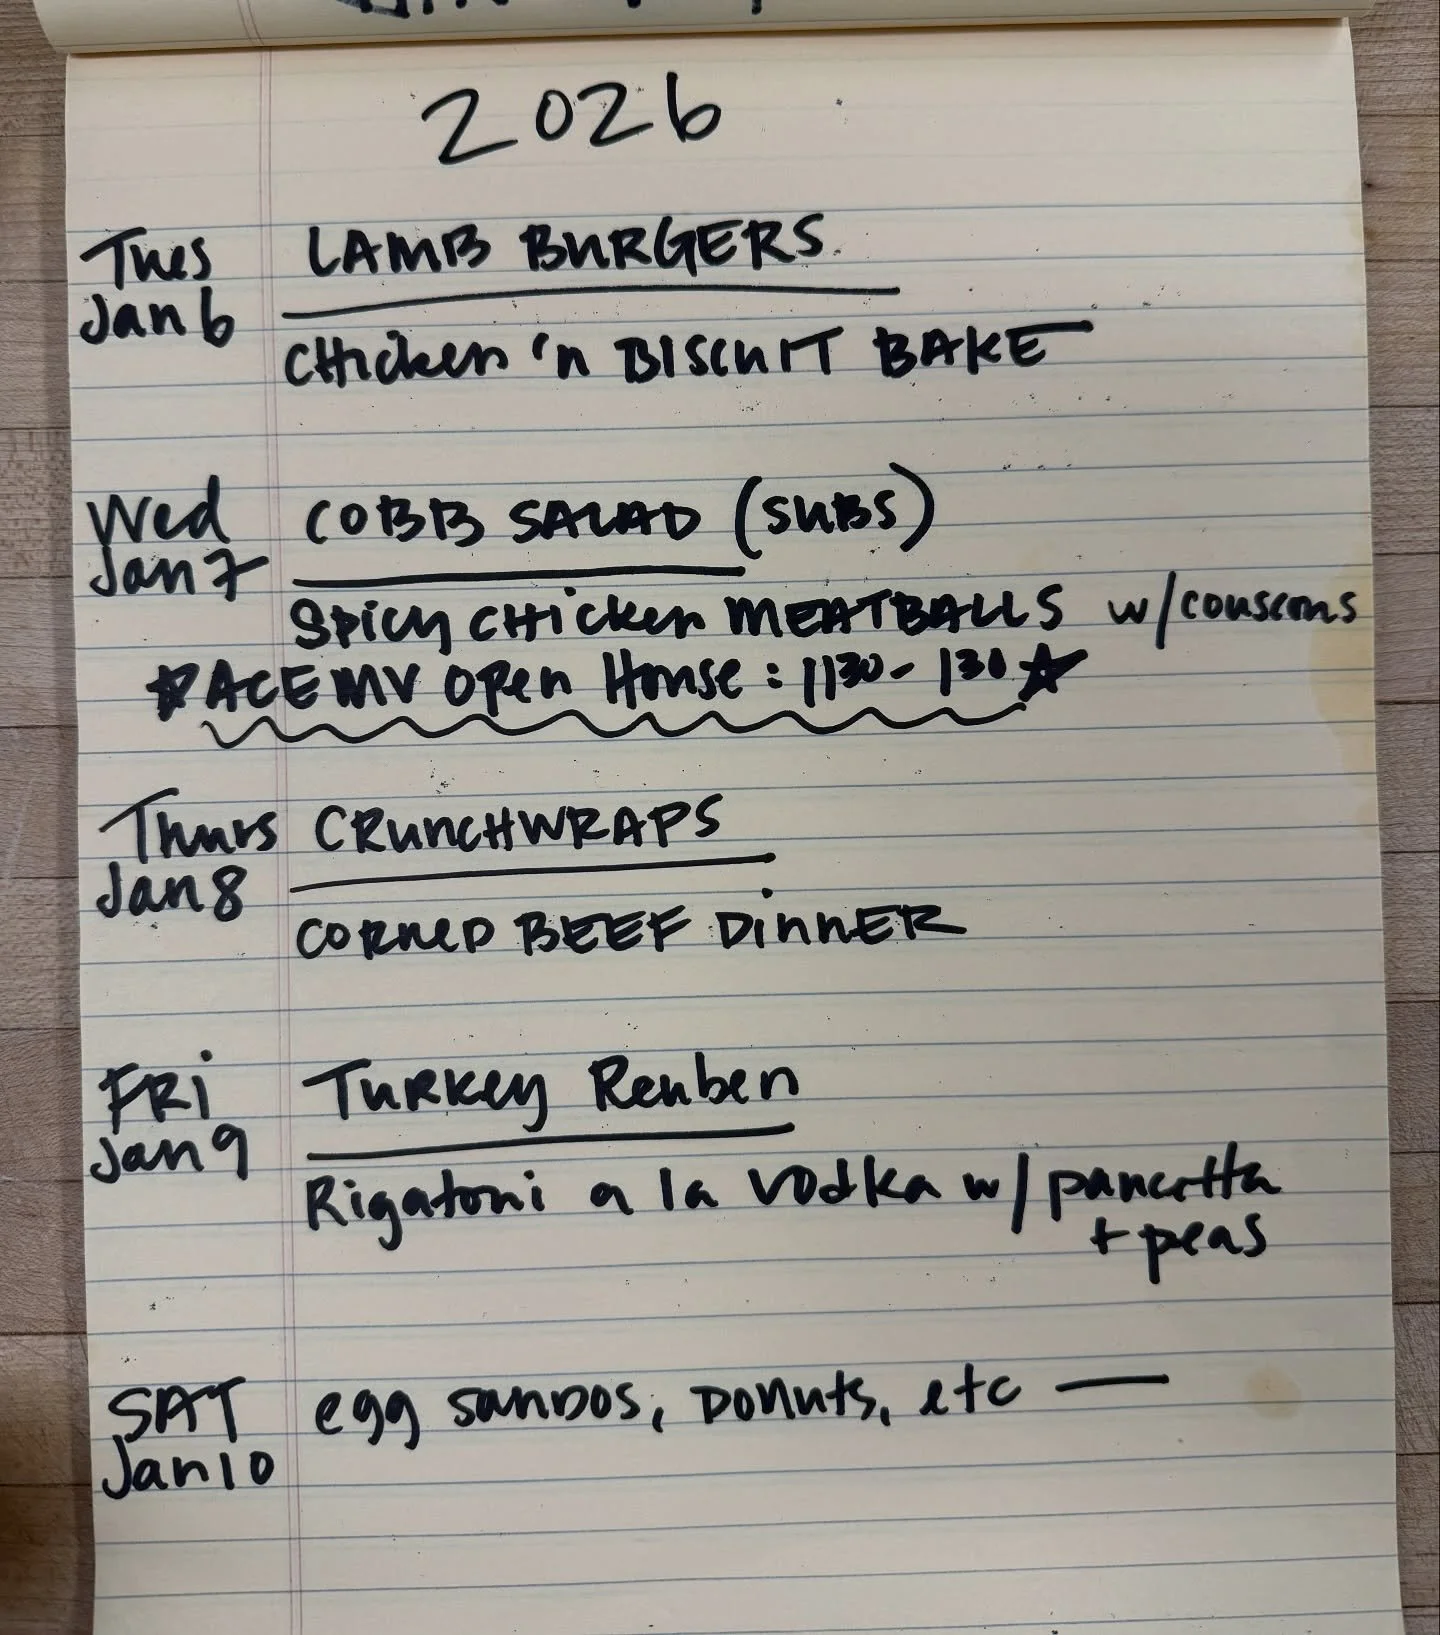 2026
Tues LAMB BURGERS
Jan 6
Chicken 'n BISCUIT BAKE
Wed COBB SALAD (SUBS)
Jan 7
Spicy Chicken MEATBALLS w/couscous
ACEMV Open House: 1130- 130
Thurs CRUNCHWRAPS
Jan 8
CORNED BEEF DINNER
FRI Turkey Reuben
Jan 9
Rigatoni a la vodka w/ pancetta
+ peas
SAT egg sandos, donuts, etc —
Jan 10